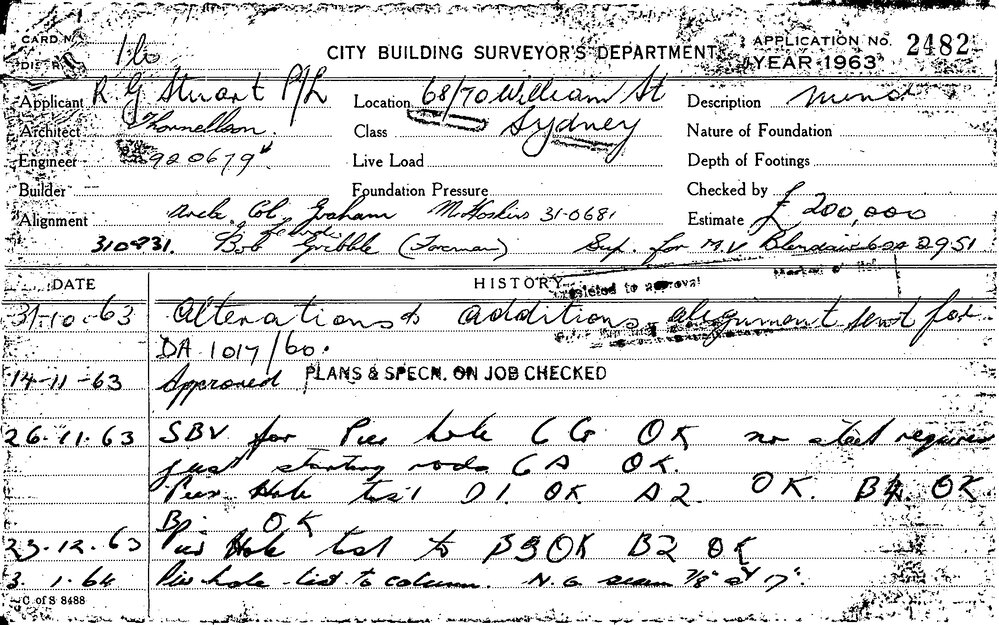 CARD No. 1/60
CITY BUILDING SURVEYOR'S DEPARTMENT
APPLICATION No. 2482
DISTR.
YEAR 1963
Applicant R G Stuart P/L
Location 68/70 William St
Description
Architect Thornellson.
Class Sydney
Nature of Foundation
Engineer 920679
Live Load
Depth of Footings
Builder
Foundation Pressure
Checked by
Alignment Arch. Col. Graham McHoskins 31-0681
Estimate £ 200,000
310831. Bob Gribble (Foreman) Sup. for M.V. 2951
DATE
HISTORY
related to approval
31-10-63 Alterations & additions, alignment sent for
DA 1017/60.
14-11-63 Approved PLANS & SPECN. ON JOB CHECKED
26.11.63 SBV for Pier hole CG OK no steel required
just starting rods CA OK.
Pier Hole test D1. OK A2. OK. B4 OK
OK
23.12.63 Pier Hole test to B3 OK B2 OK
3.1.64 Pier hole test to column. N.G. seam 7/8" at 17".
C of S 8488